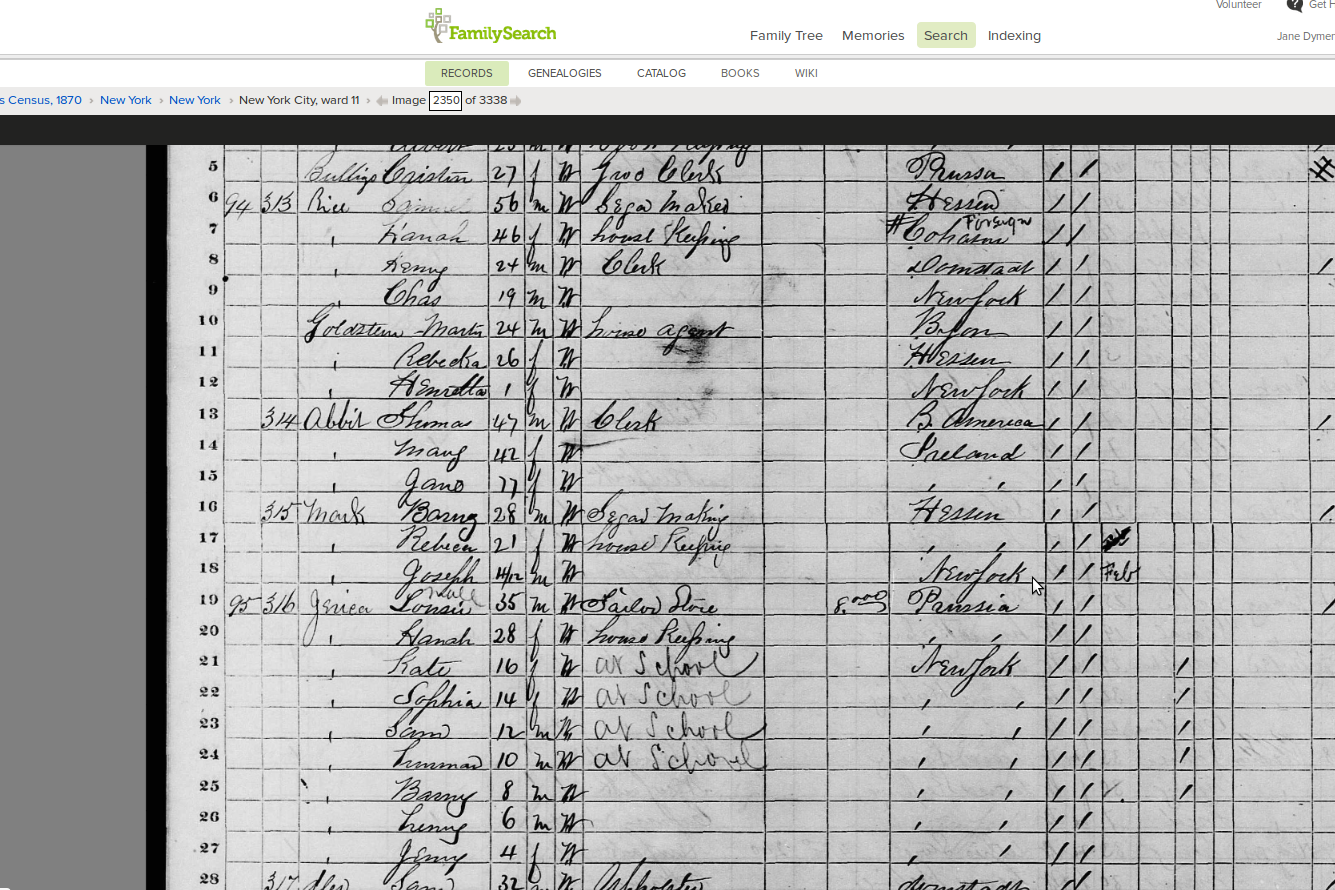 Volunteer ? Get H
FamilySearch Family Tree Memories Search Indexing Jane Dymer
RECORDS GENEALOGIES CATALOG BOOKS WIKI
s Census, 1870 › New York › New York › New York City, ward 11 › Image 2350 of 3338
5 Cristin 27 f W Groo Clerk Prussa / /
6 94 313 Rice Samuel 56 m W Segar Maker Hessen / /
7 " Hanah 46 f W house Keeping # Foreign / /
8 " Henry 24 m W Clerk Domstadt / / /
9 " Chas 19 m W New York / /
10 Goldstein Martin 24 m W house agent / /
11 " Rebecka 26 f W Hessen / /
12 " Henretta 1 f W New York / /
13 314 Abbit Thomas 47 m W Clerk B. America / / /
14 " Mary 42 f W Ireland / /
15 " Jano 77 f W " " / /
16 315 Mark Barny 28 m W Segar Making Hessen / / /
17 " Rebeca 21 f W house Keeping " " / /
18 " Joseph 4/12 m W New York / / Feb
19 95 316 35 m W Tailor Store 8,000 Prussia / / /
20 " Hanah 28 f W house Keeping " " / /
21 " Kate 16 f W at School New York / / /
22 " Sophia 14 f W at School " " / / /
23 " Sam 12 m W at School " " / / /
24 " 10 m W at School " " / / /
25 " Barny 8 m W " " / / /
26 " henry 6 m W " " / /
27 " Jenny 4 f W " " / /
28 317 Sam 32